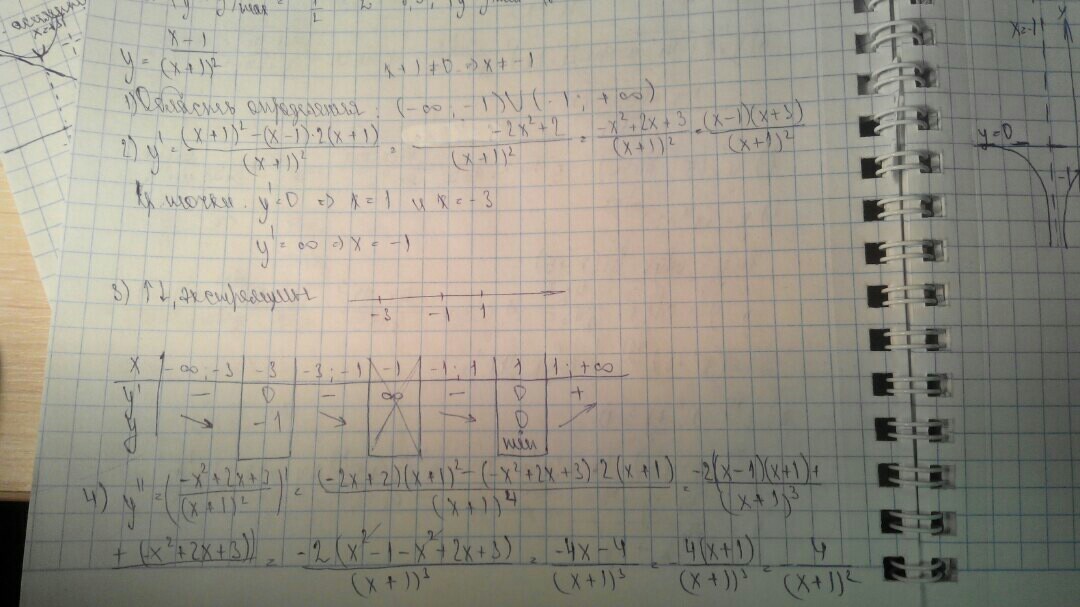 y = (x-1)/(x+1)²   x+1≠0 ⇒ x≠-1
1) Область определения: (-∞; -1)∪(-1; +∞)
2) y' = ((x+1)²-(x-1)·2(x+1))/(x+1)² = (-2x²+2)/(x+1)² = (-x²+2x+3)/(x+1)² = ((x-1)(x+3))/(x+1)²
Кр. точки. y'=0 ⇒ x=1 и x=-3
y'=∞ ⇒ x=-1
3) ↑↓, экстремумы
-3 -1 1
x | -∞;-3 | -3 | -3;-1 | -1 | -1;1 | 1 | 1;+∞
y' | - | 0 | - | ∞ | - | 0 | +
y | ↘ | -1 | ↘ | | ↘ | 0 | ↗
min
4) y'' = ((-x²+2x+3)/(x+1)²)' = ((-2x+2)(x+1)²-(-x²+2x+3)·2(x+1))/(x+1)⁴ = -2(x-1)(x+1)+/(x+1)³
+(x²+2x+3)) = -2(x²-1-x²+2x+3)/(x+1)³ = (-4x-4)/(x+1)³ = 4(x+1)/(x+1)³ = 4/(x+1)²
x=-1
y
y=0
-1